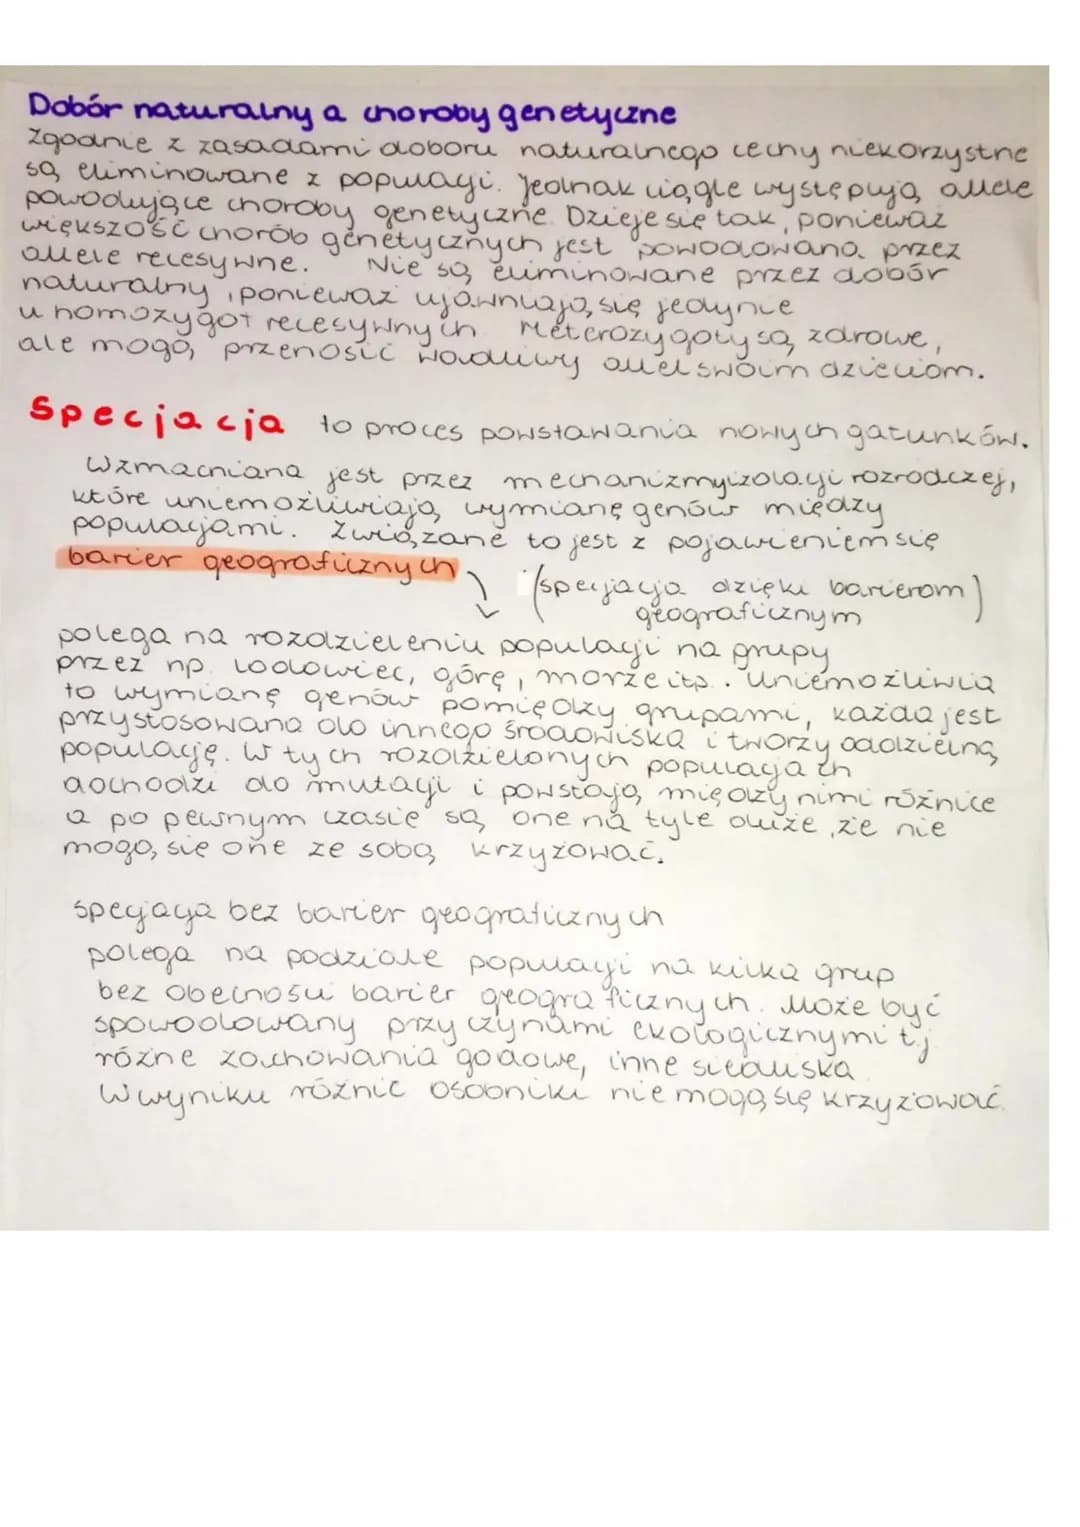 Dobór naturalny a choroby genetyczne
Zgodnie z zasadami doboru naturalnego cechy niekorzystne
są eliminowane z populacji. Jednak ciągle występują allele
powodujące choroby genetyczne. Dzieje się tak, ponieważ
większość chorób genetycznych jest powodowana przez
allele recesywne. Nie są eliminowane przez dobór
naturalny, ponieważ ujawniają się jedynie
u homozygot recesywnych. Heterozygoty są zdrowe,
ale mogą przenosić wadliwy allel swoim dzieciom.
Specjacja to proces powstawania nowych gatunków.
Wzmacniana jest przez mechanizmy izolacji rozrodczej,
które uniemożliwiają wymianę genów między
populacjami. Związane to jest z pojawieniem się
barier geograficznych
(specjacja dzięki barierom
geograficznym)
polega na rozdzieleniu populacji na grupy
przez np. lodowiec, górę, morze itp. Uniemożliwia
to wymianę genów pomiędzy grupami, każda jest
przystosowana do innego środowiska i tworzy oddzielną
populację. W tych rozdzielonych populacjach
dochodzi do mutacji i powstają między nimi różnice
a po pewnym czasie są one na tyle duże, że nie
mogą się one ze sobą krzyżować.
specjacja bez barier geograficznych
polega na podziale populacji na kilka grup
bez obecności barier geograficznych. Może być
spowodowany przyczynami ekologicznymi tj.
różne zachowania godowe, inne siedliska.
W wyniku różnic osobniki nie mogą się krzyżować.